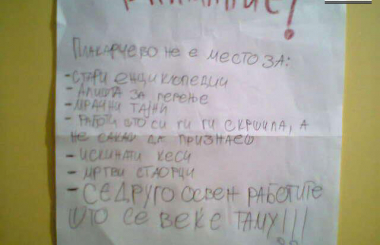 ВНИМАНИЕ!
ПЛАКАРЧЕВО НЕ Е МЕСТО ЗА:
- СТАРИ ЕНЦИКЛОПЕДИИ
- АЛИШТА ЗА ПЕРЕЊЕ
- МРАЧНИ ТАЈНИ
- РАБОТИ ШТО СИ ГИ ГИ СКРШИЛА, А
НЕ САКАШ ДА ПРИЗНАЕШ
- ИСКИНАТИ КЕСИ
- МРТВИ СТАОРЦИ
- СЕ ДРУГО ОСВЕН РАБОТИТЕ
ШТО СЕ ВЕЌЕ ТАМУ!!!